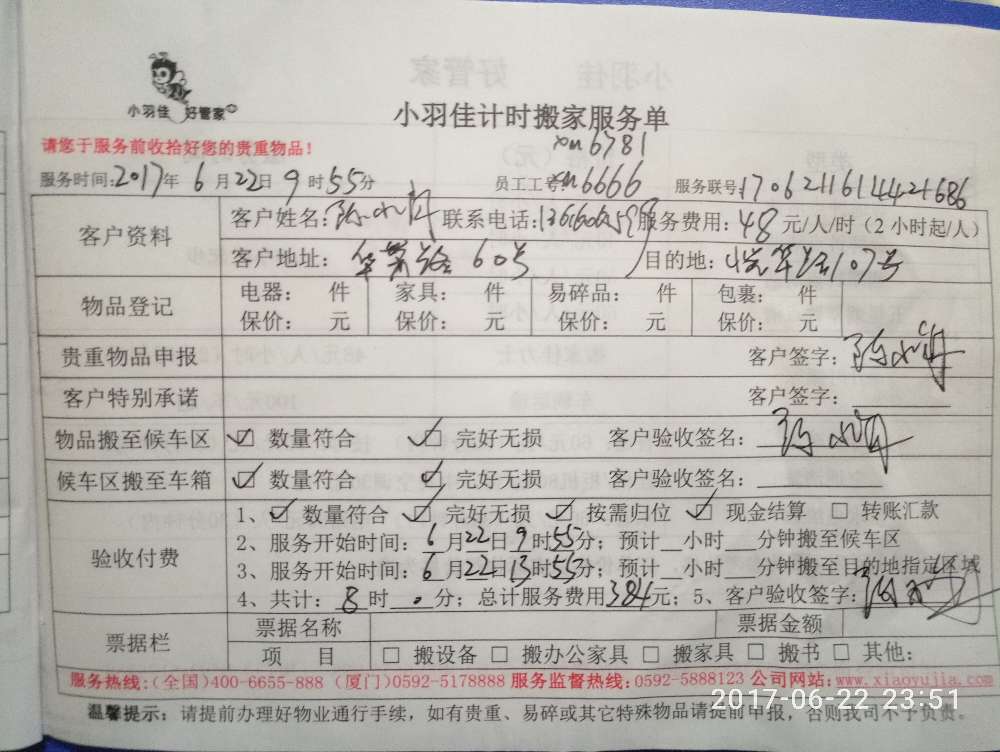 小羽佳 好管家
小羽佳计时搬家服务单
请您于服务前收拾好您的贵重物品！
xm6781
服务时间:2017年 6 月 22日 9 时55分 员工工号:xm6666 服务联号:1706211614421686
客户资料 客户姓名: 联系电话: 服务费用: 48 元/人/时（2 小时起/人）
客户地址: 60号 目的地: 107号
物品登记 电器： 件 家具： 件 易碎品： 件 包裹： 件
保价： 元 保价： 元 保价： 元 保价： 元
贵重物品申报 客户签字:
客户特别承诺 客户签字:
物品搬至候车区 ☑ 数量符合 ☑ 完好无损 客户验收签名:
候车区搬至车箱 ☑ 数量符合 ☑ 完好无损 客户验收签名:
验收付费 1、☑ 数量符合 ☑ 完好无损 ☑ 按需归位 ☑ 现金结算 □ 转账汇款
2、服务开始时间: 6 月22日 9 时55分；预计__小时___分钟搬至候车区
3、服务开始时间: 6 月22日13时55分；预计__小时___分钟搬至目的地指定区域
4、共计: 8 时 分；总计服务费用384元；5、客户验收签字:
票据栏 票据名称 票据金额
项 目 □ 搬设备 □ 搬办公家具 □ 搬家具 □ 搬书 □ 其他:
服务热线:(全国)400-6655-888 (厦门)0592-5178888 服务监督热线:0592-5888123 公司网站:www.xiaoyujia.com
2017-06-22 23:51
温馨提示: 请提前办理好物业通行手续，如有贵重、易碎或其它特殊物品请提前申报，否则我司不予负责。